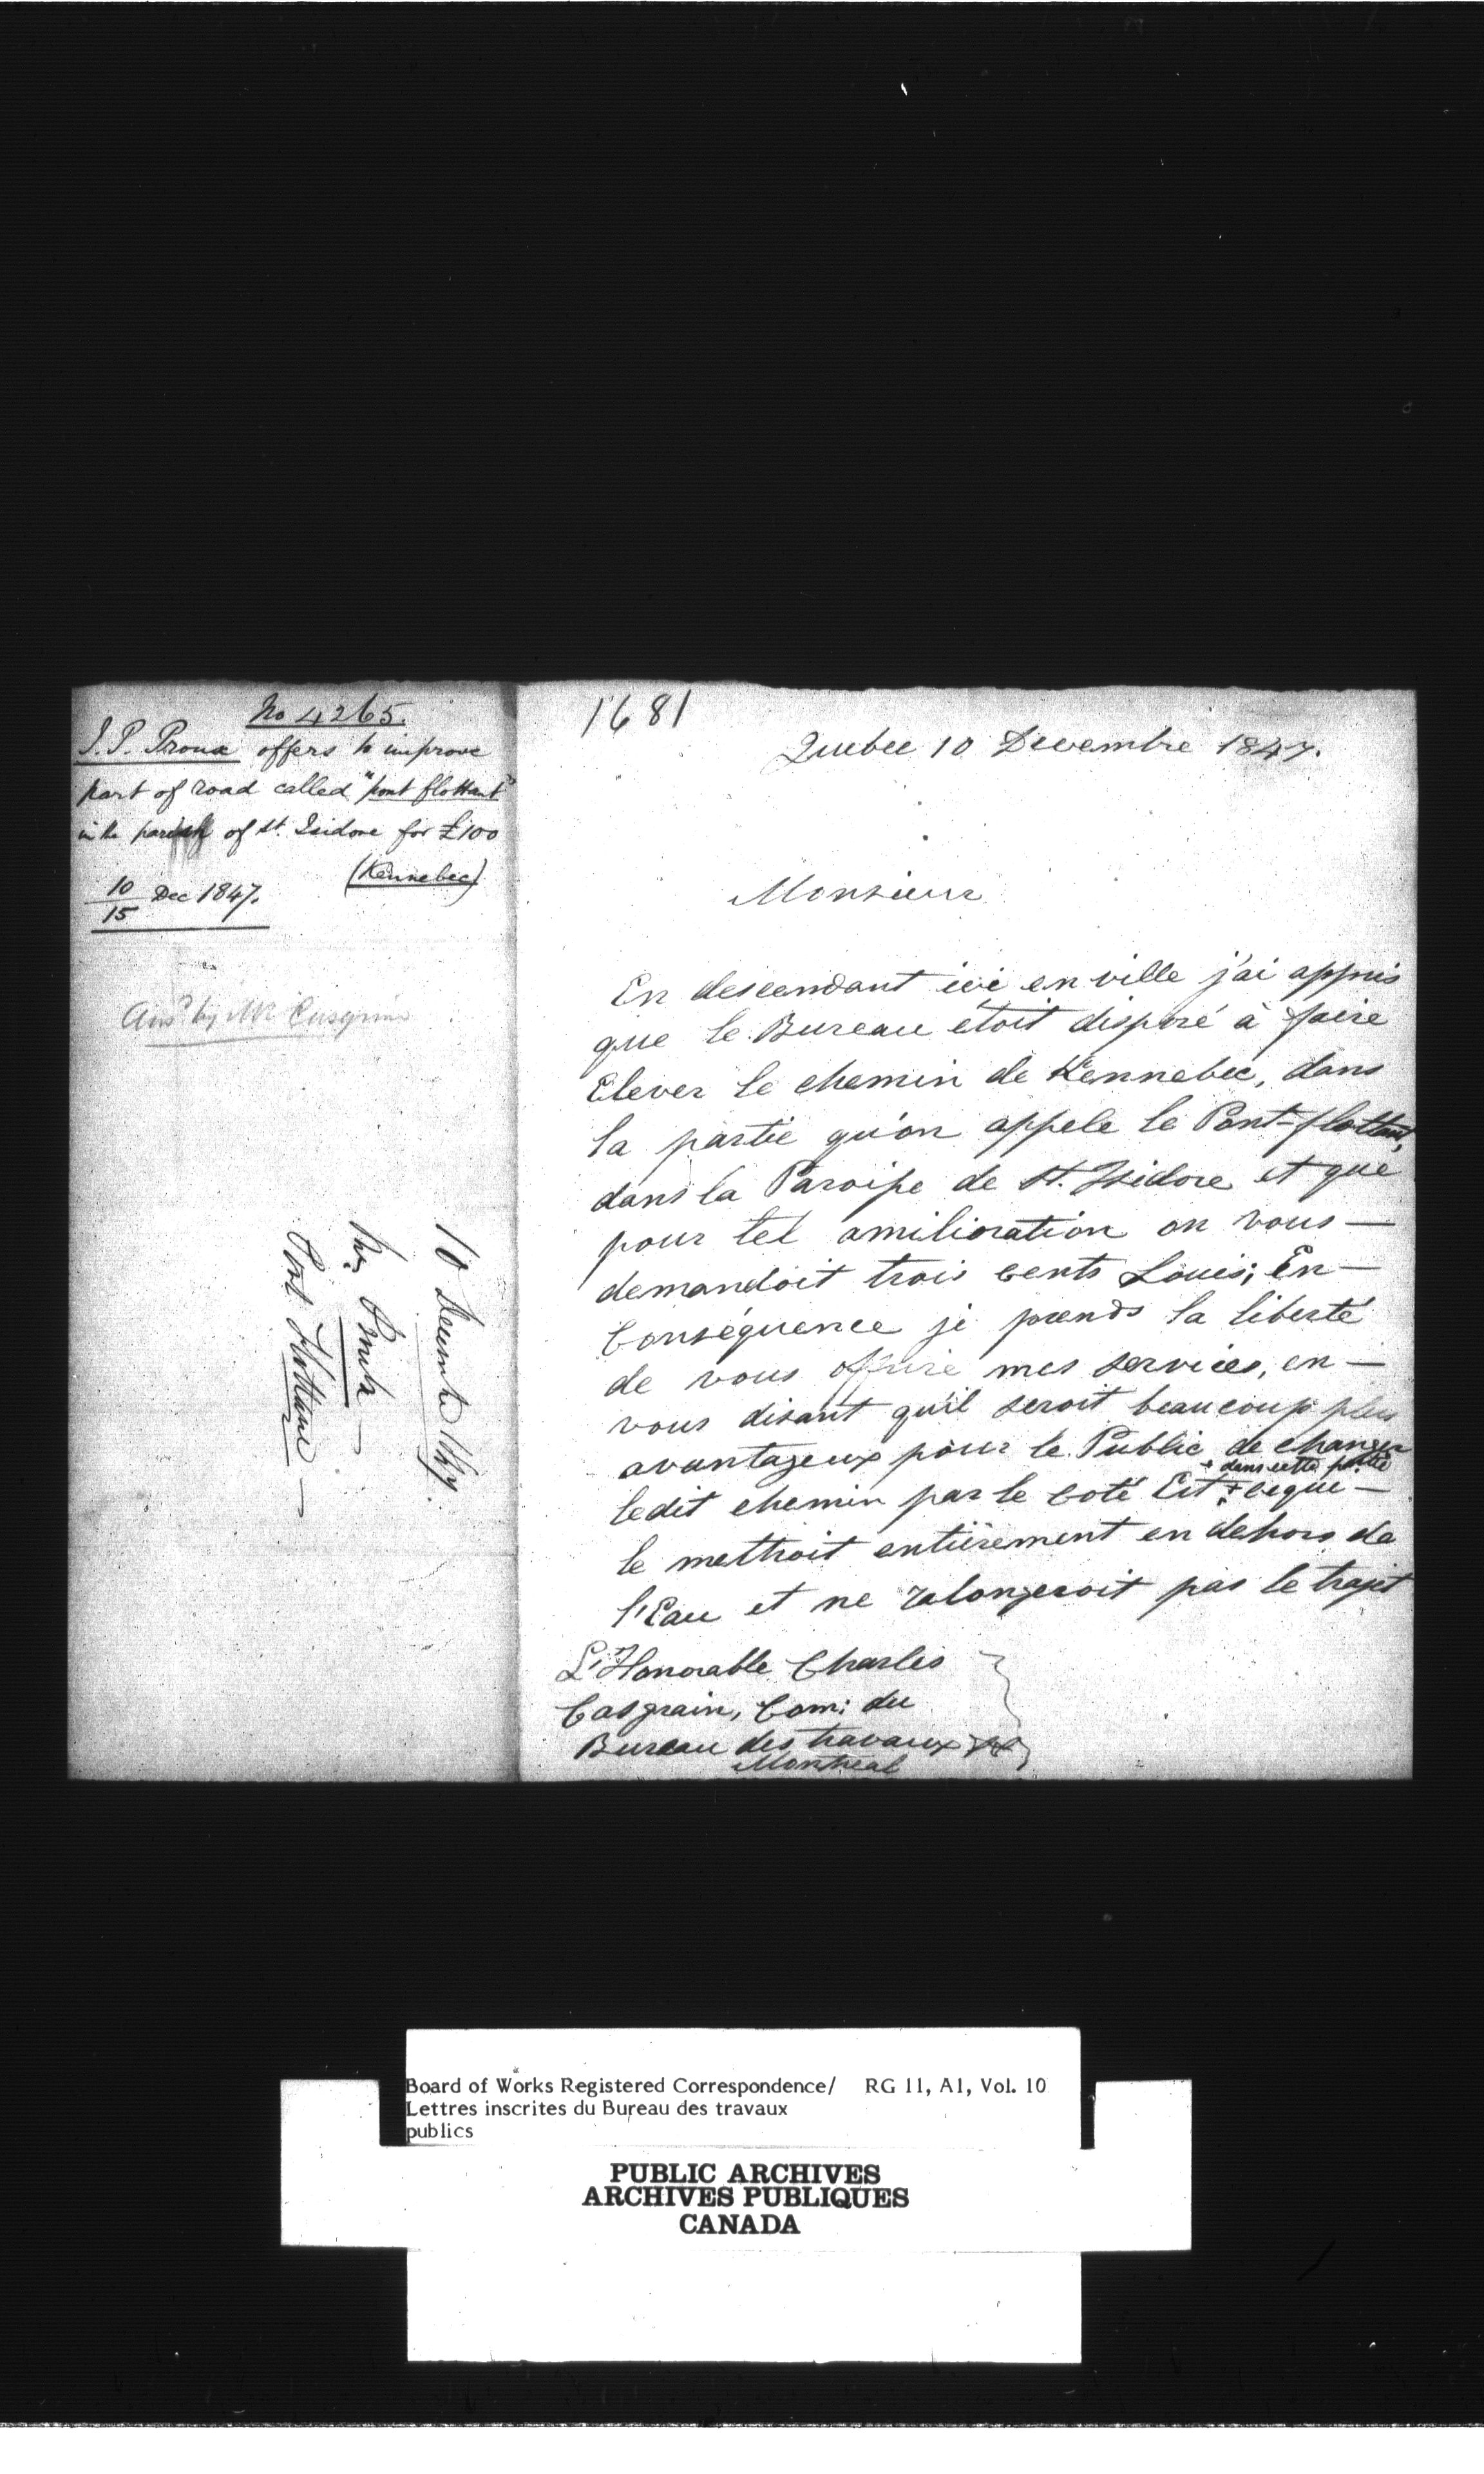 No 4265.
J. P. Proux offers to improve
part of road called "pont flottant"
in the parish of St. Isidore for £100
(Kennebec)
10/15 Dec 1847.
Ansd by Mr Casgrain
10 Decembre 1847
Mr Proulx —
Pont Flottant —
1681
Quebec 10 Decembre 1847.
Monsieur
En descendant ici en ville j'ai appris
que le Bureau étoit disposé à faire
Elever le chemin de Kennebec, dans
la partie qu'on appele le Pont-flottant,
dans la Paroisse de St. Isidore et que
pour tel amilioration on vous —
demandoit trois cents Louis; En —
Conséquence je prends la liberté
de vous offrire mes services, en —
vous disant qu'il seroit beaucoup plus
avantageux pour le Public de changer
+ dans cette partie
ledit chemin par le coté Est + cequi —
le mettroit entièrement en dehors de
l'Eau et ne ralongeroit pas le trajet
L'Honorable Charles
Casgrain, Com: du
Bureau des travaux
Montreal
Board of Works Registered Correspondence/ RG 11, A1, Vol. 10
Lettres inscrites du Bureau des travaux
publics
PUBLIC ARCHIVES
ARCHIVES PUBLIQUES
CANADA